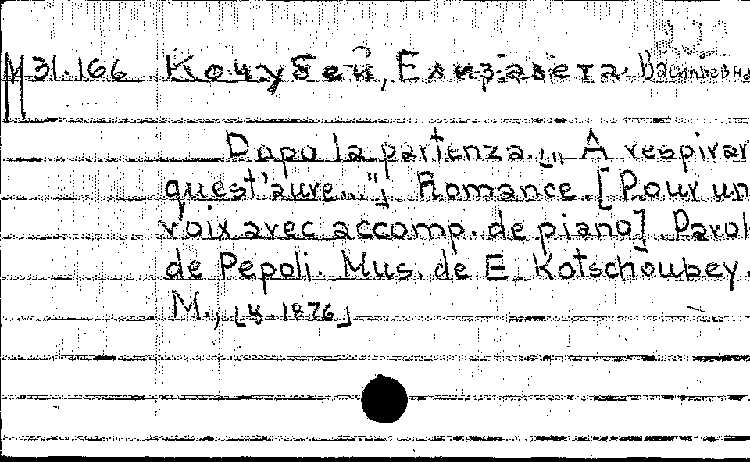 М 31.166 Кочубей, Елизавета Васильевна
Dapo la partenza. [„ A respirar
quest'aure..."] Romance. [Pour un
voix avec accomp. de piano] Parol
de Pepoli. Mus. de E. Kotschoubey.
M., [ 1876]